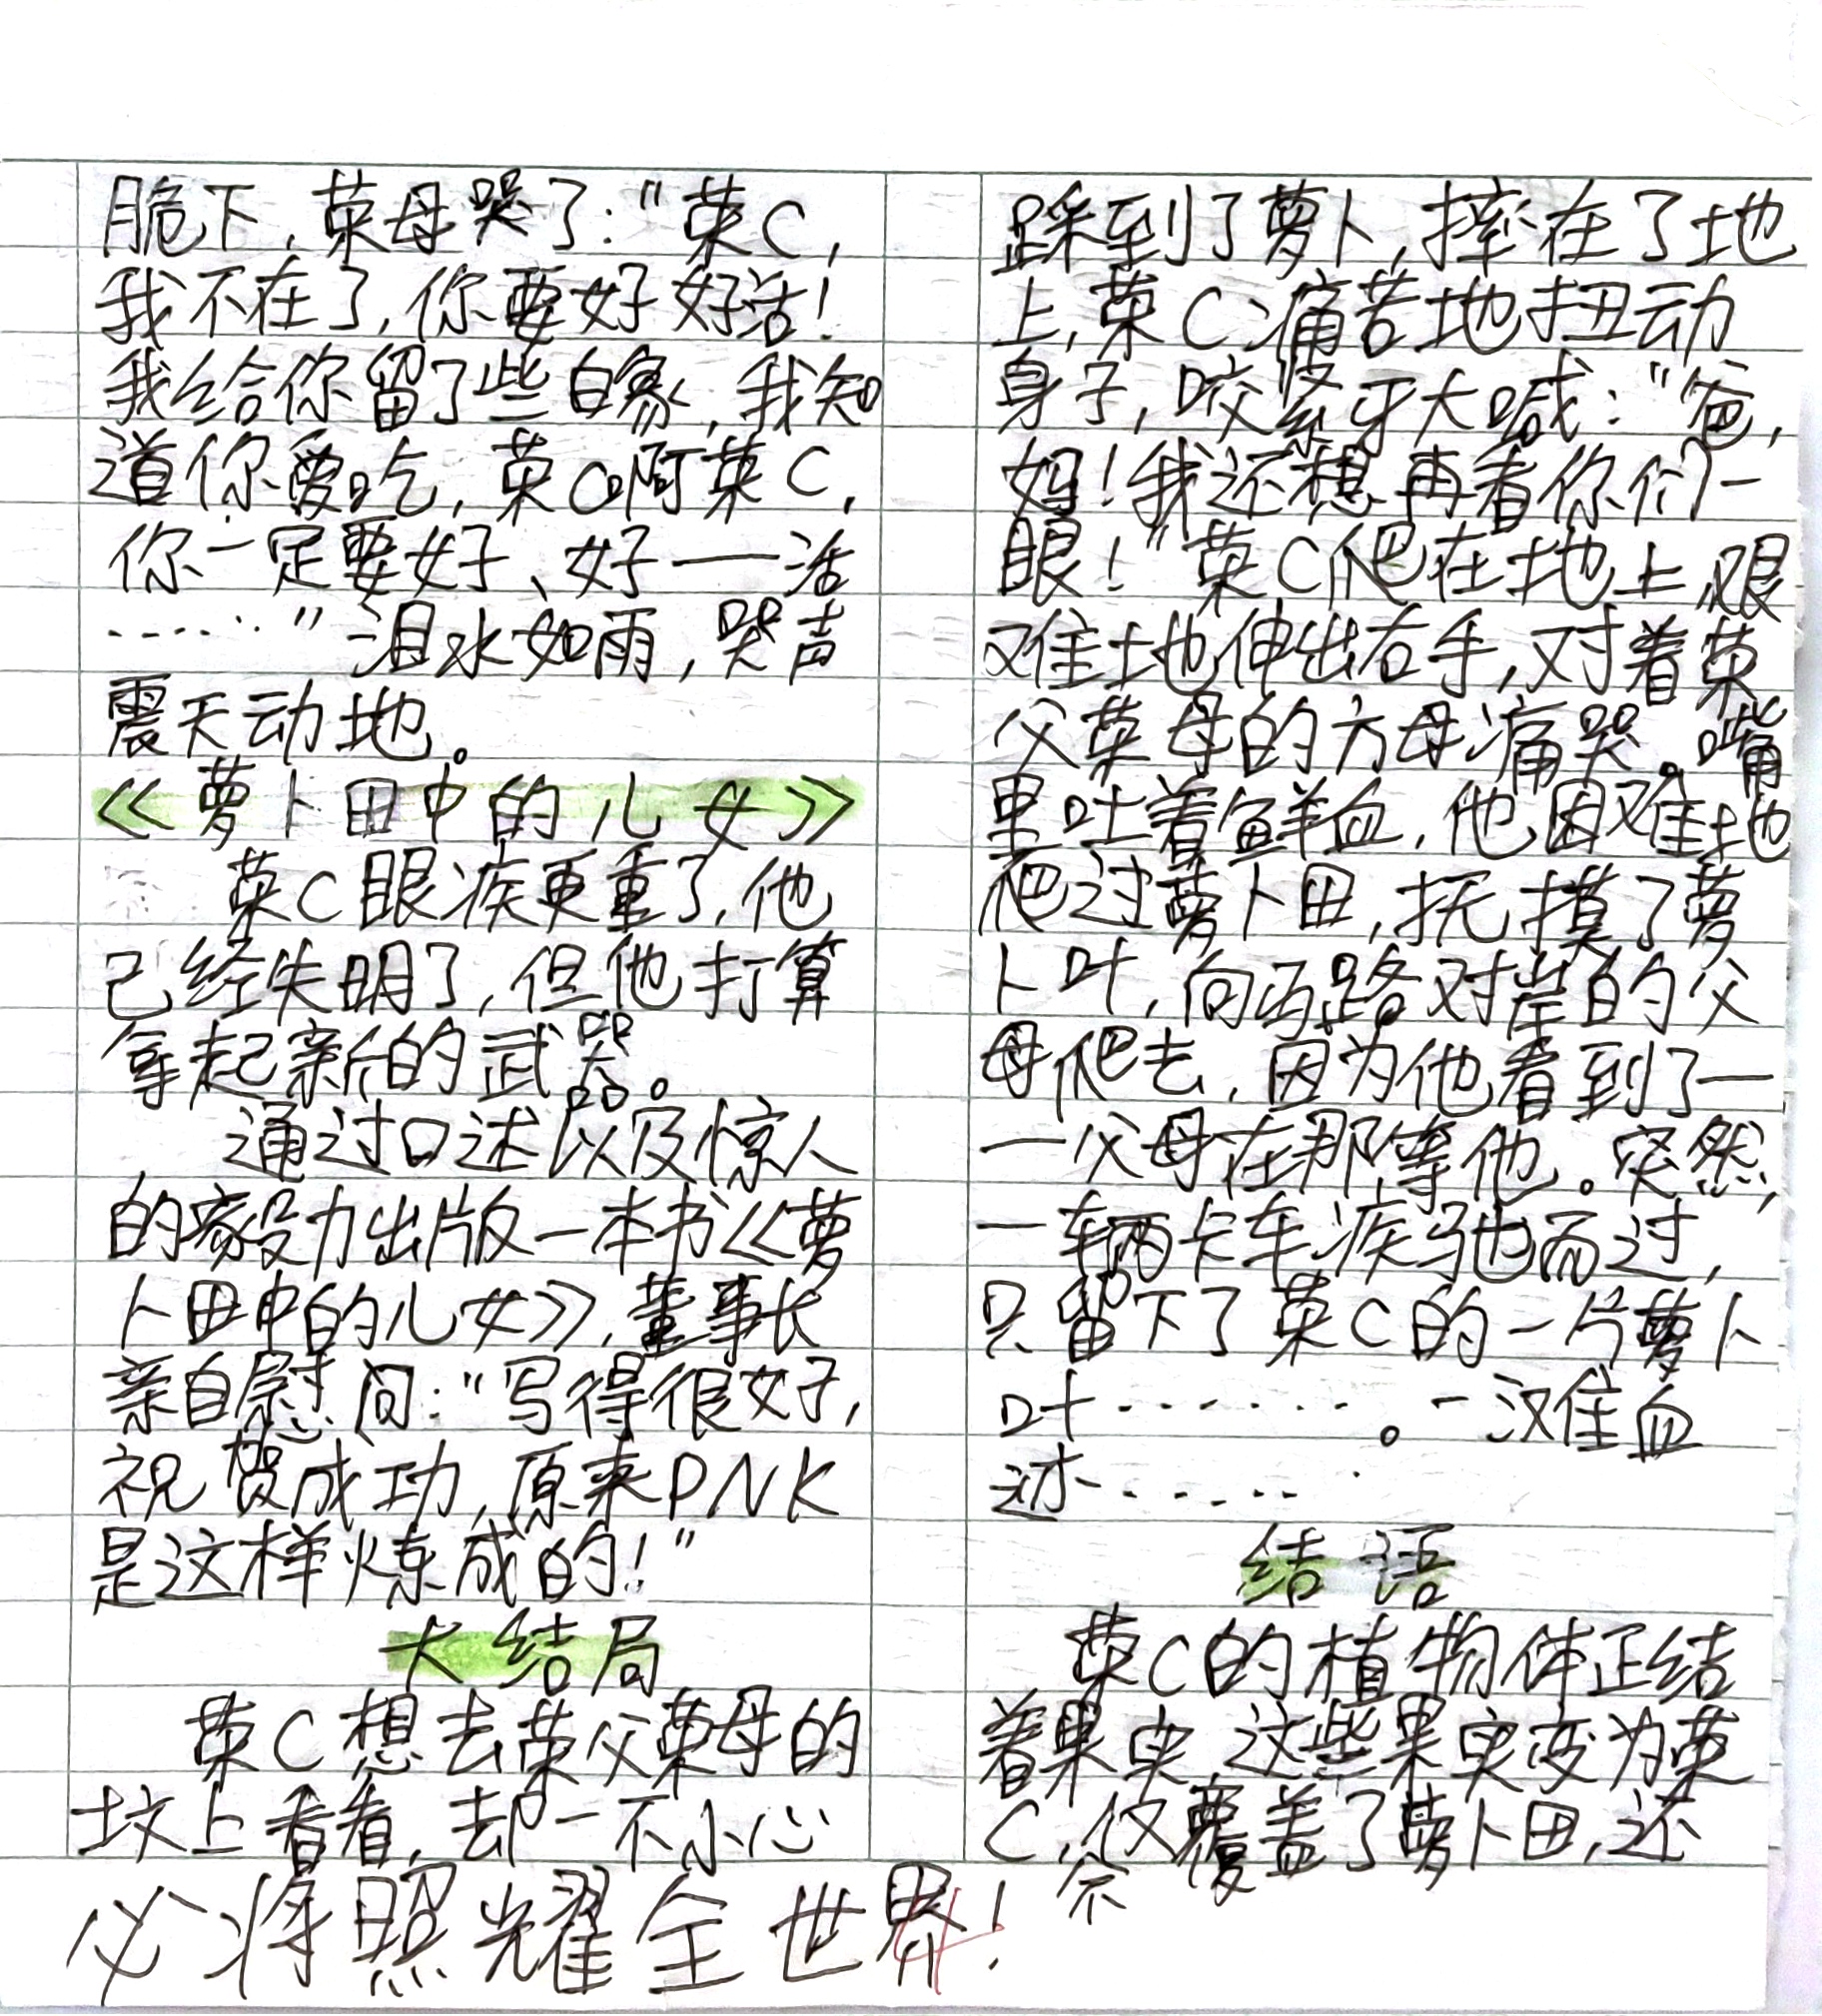 脆下,菜母哭了:“菜C,
我不在了,你要好好活!
我给你留了些白象,我知
道你爱吃,菜C啊菜C,
你一定要好、好——活
……”泪水如雨,哭声
震天动地。
《萝卜田中的儿女》
菜C眼疾更重了,他
已经失明了,但他打算
拿起新的武器。
通过口述以及惊人
的毅力出版一本书《萝
卜田中的儿女》,董事长
亲自慰问:“写得很好,
祝贺成功,原来PNK
是这样炼成的!”
大结局
菜C想去菜父菜母的
坟上看看,却一不小心
踩到了萝卜,摔在了地
上,菜C痛苦地扭动
身子,咬紧牙大喊:“爸,
妈!我还想再看你们一
眼!”菜C爬在地上艰
难地伸出右手,对着菜
父菜母的方母痛哭。嘴
里吐着鲜血,他困难地
爬过萝卜田,抚摸了萝
卜叶,向马路对岸的父
母爬去,因为他看到了—
—父母在那等他。突然,
一辆卡车疾驰而过,
只留下了菜C的一片萝卜
叶……。一滩血
迹……
结语
菜C的植物体正结
着果实,这些果实变为菜
C,不仅覆盖了萝卜田,还
必将照耀全世界!